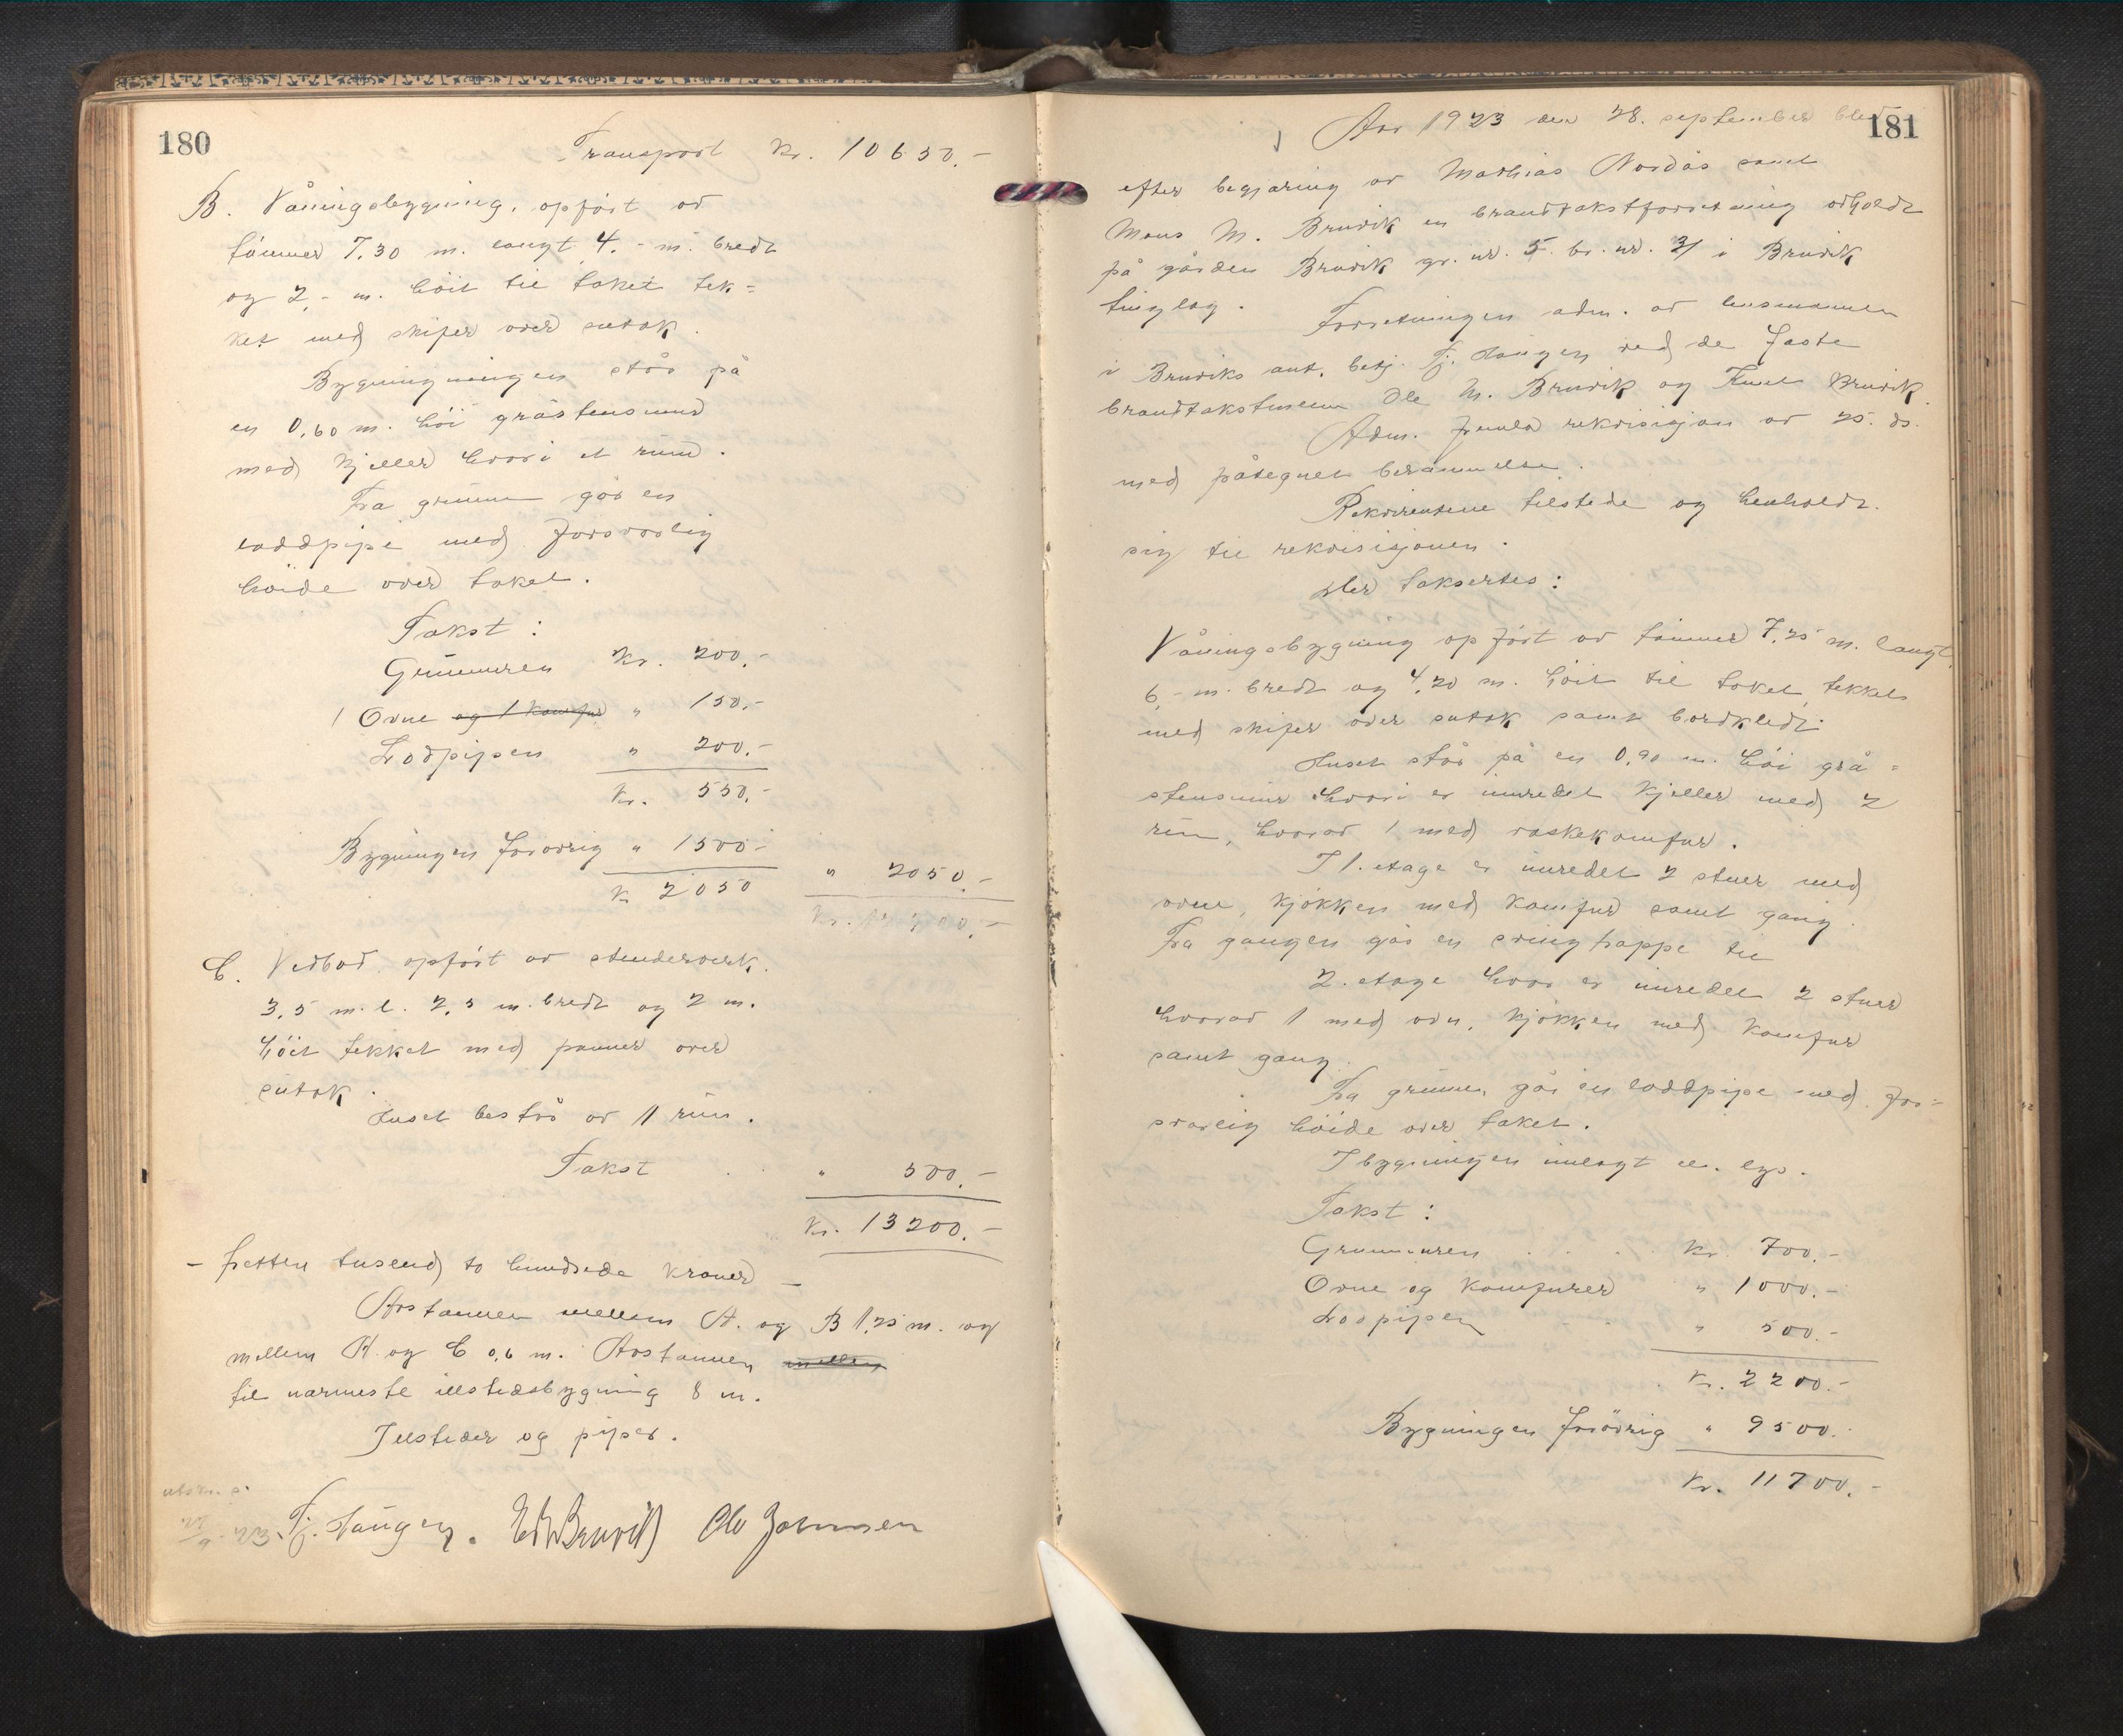 180
Transport Kr. 10650.-
B. Våningsbygning, opført av
tømmer 7,30 m. langt 4,- m. bredt
og 2,- m. höit til taket tek=
ket med skifer over sutak.
Bygningningen står på
en 0,60 m. höi gråstensmur
med kjeller hvori et rüm.
Fra grünnen går en
loddpipe med forsvarlig
höide over taket.
Takst:
Grünmuren Kr. 200,-
1 Ovne og 1 komfur " 150,-
Lodpipen " 200,-
Kr. 550,-
Bygningen forövrig " 1500,-
Kr 2050 " 2050.-
C. Vedbod opført av stenderverk.
3,5 m. l. 2,5 m. bredt og 2 m.
höit tekket med panner over
sutak.
Huset består av 1 rüm.
Takst " 500.-
Kr. 13200.-
- tretten tusend to hundrede kroner -
Avstannen mellem A. og B 1,25 m. og
mellem A og C 0,6 m. Avstannen mellem
til nærmeste illstedsbygning 8 m.
Illsteder og piper.
utskr. s.
Fj. Haugen. Ole Johnsen
181
Aar 1923 den 28. september blev
efter begjæring av Mathias Nordås samt
Mons M. Bruvik en brandtakstforretning avholdt
på gården Bruvik gr. nr. 5. br. nr. 31 i Bruvik
tinglag. Forretningen adm. av lensmannen
i Bruviks aut. betj. Fj. Haugen ved de faste
brandtakstmenn Ole M. Bruvik og Knut Bruvik.
Adm. fremla rekvisisjon av 25. ds.
med påtegnet berammelse.
Rekvirentene tilstede og henholdt
sig til rekvisisjonen.
Der taksertes:
Våningsbygning opført av tømmer 7,25 m. langt,
6,- m. bredt og 4,20 m. höit til taket, tekket
med skifer over sutak samt bordkledt.
Huset står på en 0,90 m. höi grå=
stensmur hvori er innredet kjeller med 2
rüm, hvorav 1 med vaskekomfur.
I 1. etage er innredet 2 stuer med
ovne, kjøkken med komfur samt gang.
Fra gangen går en svingtrappe til
2. etage hvor er innredet 2 stuer
hvorav 1 med ovn, kjøkken med komfur
samt gang.
Fra grünnen går en loddpipe med for=
svarlig höide over taket.
I bygningen innlagt el. lys.
Takst:
Grunmuren Kr. 700,-
Ovne og komfurer " 1000.-
Lodpipen " 500.-
Kr. 2200.-
Bygningen forövrig " 9500.-
Kr. 11700.-